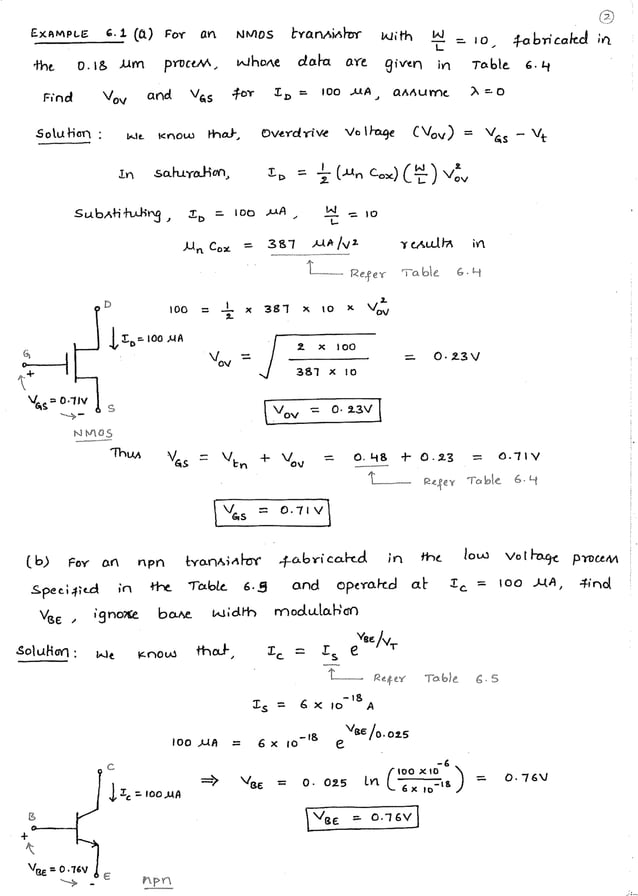 ②
EXAMPLE 6.1 (a) For an NMOS transistor with W/L = 10, fabricated in
the 0.18 μm process, whose data are given in Table 6.4
Find V_OV and V_GS for I_D = 100 μA, assume λ = 0
Solution : We know that, Overdrive Voltage (V_OV) = V_GS - V_t
In saturation, I_D = 1/2 (μn Cox) (W/L) V_OV^2
Substituting, I_D = 100 μA, W/L = 10
μn Cox = 387 μA/V2 results in
Refer Table 6.4
100 = 1/2 × 387 × 10 × V_OV^2
V_OV = √(2 × 100 / 387 × 10) = 0.23V
V_OV = 0.23V
D
I_D = 100 μA
G
+
V_GS = 0.71V
-
S
NMOS
Thus V_GS = V_tn + V_OV = 0.48 + 0.23 = 0.71V
Refer Table 6.4
V_GS = 0.71V
(b) For an npn transistor fabricated in the low voltage process
specified in the Table 6.5 and operated at I_C = 100 μA, find
V_BE, ignore base width modulation
Solution : We know that, I_C = I_S e^(V_BE/V_T)
Refer Table 6.5
I_S = 6 × 10^-18 A
100 μA = 6 × 10^-18 e^(V_BE/0.025)
⇒ V_BE = 0.025 ln (100 × 10^-6 / 6 × 10^-18) = 0.76V
V_BE = 0.76V
C
I_C = 100 μA
B
+
V_BE = 0.76V
-
E
npn